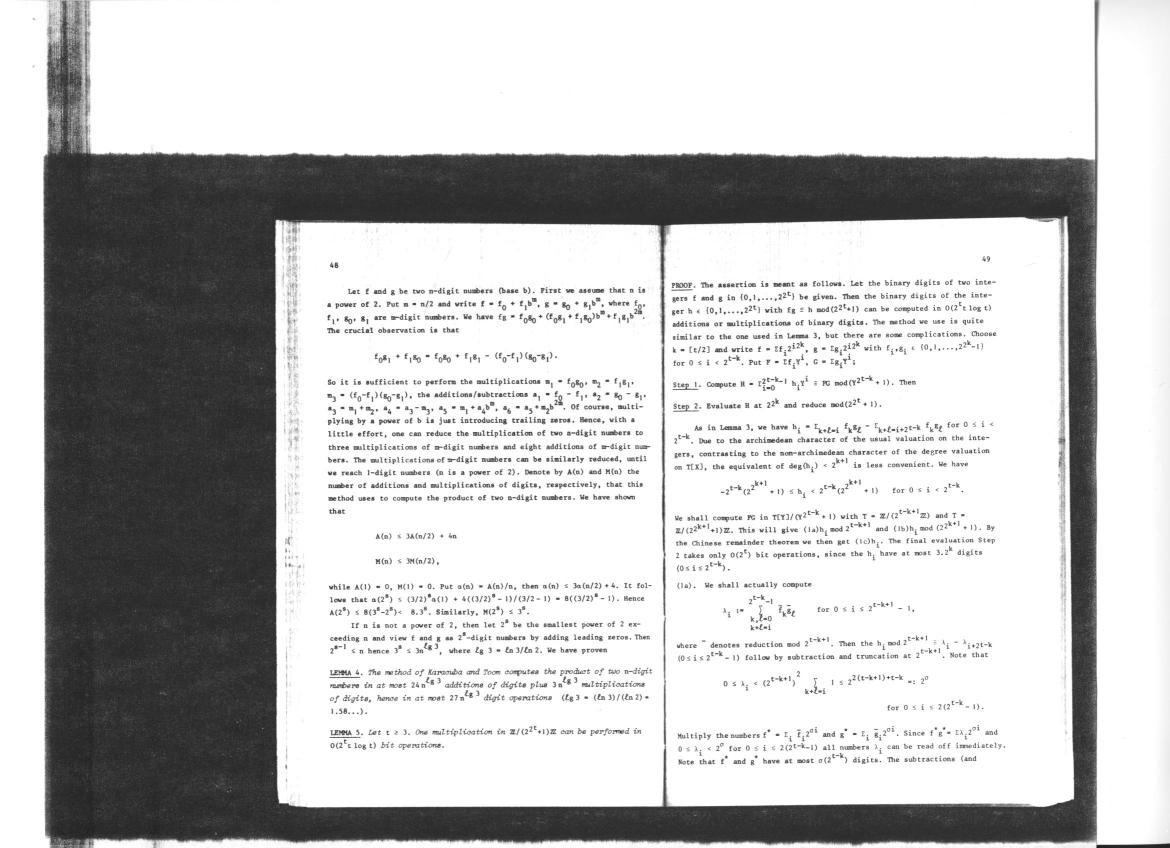 48
Let f and g be two n-digit numbers (base b). First we assume that n is
a power of 2. Put m = n/2 and write f = f₀ + f₁bᵐ, g = g₀ + g₁bᵐ, where f₀,
f₁, g₀, g₁ are m-digit numbers. We have fg = f₀g₀ + (f₀g₁ + f₁g₀)bᵐ + f₁g₁b²ᵐ.
The crucial observation is that
f₀g₁ + f₁g₀ = f₀g₀ + f₁g₁ - (f₀-f₁)(g₀-g₁).
So it is sufficient to perform the multiplications m₁ = f₀g₀, m₂ = f₁g₁,
m₃ = (f₀-f₁)(g₀-g₁), the additions/subtractions a₁ = f₀ - f₁, a₂ = g₀ - g₁,
a₃ = m₁ + m₂, a₄ = a₃ - m₃, a₅ = m₁ + a₄bᵐ, a₆ = a₅ + m₂b²ᵐ. Of course, multi-
plying by a power of b is just introducing trailing zeros. Hence, with a
little effort, one can reduce the multiplication of two n-digit numbers to
three multiplications of m-digit numbers and eight additions of m-digit num-
bers. The multiplications of m-digit numbers can be similarly reduced, until
we reach 1-digit numbers (n is a power of 2). Denote by A(n) and M(n) the
number of additions and multiplications of digits, respectively, that this
method uses to compute the product of two n-digit numbers. We have shown
that
A(n) ≤ 3A(n/2) + 4n
M(n) ≤ 3M(n/2),
while A(1) = 0, M(1) = 0. Put α(n) = A(n)/n, then α(n) ≤ 3α(n/2) + 4. It fol-
lows that α(2ˢ) ≤ (3/2)ˢα(1) + 4((3/2)ˢ - 1)/(3/2 - 1) = 8((3/2)ˢ - 1). Hence
A(2ˢ) ≤ 8(3ˢ-2ˢ) < 8.3ˢ. Similarly, M(2ˢ) ≤ 3ˢ.
If n is not a power of 2, then let 2ˢ be the smallest power of 2 ex-
ceeding n and view f and g as 2ˢ-digit numbers by adding leading zeros. Then
2ˢ⁻¹ ≤ n hence 3ˢ ≤ 3n^{ℓg 3}, where ℓg 3 = ℓn 3/ℓn 2. We have proven
LEMMA 4. The method of Karazuba and Toom computes the product of two n-digit
numbers in at most 24 n^{ℓg 3} additions of digits plus 3 n^{ℓg 3} multiplications
of digits, hence in at most 27 n^{ℓg 3} digit operations (ℓg 3 = (ℓn 3)/(ℓn 2) =
1.58...).
LEMMA 5. Let t ≥ 3. One multiplication in ℤ/(2^{2^t}+1)ℤ can be performed in
O(2^t t log t) bit operations.
49
PROOF. The assertion is meant as follows. Let the binary digits of two inte-
gers f and g in {0,1,...,2^{2^t}} be given. Then the binary digits of the inte-
ger h ∈ {0,1,...,2^{2^t}} with fg ≡ h mod(2^{2^t}+1) can be computed in O(2^t t log t)
additions or multiplications of binary digits. The method we use is quite
similar to the one used in Lemma 3, but there are some complications. Choose
k = [t/2] and write f = Σf_i 2^{i2^k}, g = Σg_i 2^{i2^k} with f_i,g_i ∈ {0,1,...,2^{2^k}-1}
for 0 ≤ i < 2^{t-k}. Put F = Σf_i Y^i, G = Σg_i Y^i;
Step 1. Compute H = Σ_{i=0}^{2^{t-k}-1} h_i Y^i ≡ FG mod(Y^{2^{t-k}} + 1). Then
Step 2. Evaluate H at 2^{2^k} and reduce mod(2^{2^t} + 1).
As in Lemma 3, we have h_i = Σ_{k+ℓ=i} f_k g_ℓ - Σ_{k+ℓ=i+2^{t-k}} f_k g_ℓ for 0 ≤ i <
2^{t-k}. Due to the archimedean character of the usual valuation on the inte-
gers, contrasting to the non-archimedean character of the degree valuation
on T[X], the equivalent of deg(h_i) < 2^{k+1} is less convenient. We have
-2^{t-k}(2^{2^{k+1}} + 1) ≤ h_i < 2^{t-k}(2^{2^{k+1}} + 1) for 0 ≤ i < 2^{t-k}.
We shall compute FG in T[Y]/(Y^{2^{t-k}} + 1) with T = ℤ/(2^{t-k+1}ℤ) and T =
ℤ/(2^{2^{k+1}}+1)ℤ. This will give (1a)h_i mod 2^{t-k+1} and (1b)h_i mod (2^{2^{k+1}} + 1). By
the Chinese remainder theorem we then get (1c)h_i. The final evaluation Step
2 takes only O(2^t) bit operations, since the h_i have at most 3.2^k digits
(0 ≤ i ≤ 2^{t-k}).
(1a). We shall actually compute
λ_i := Σ_{k,ℓ=0, k+ℓ=i}^{2^{t-k}-1} f̄_k ḡ_ℓ for 0 ≤ i ≤ 2^{t-k+1} - 1,
where ‾ denotes reduction mod 2^{t-k+1}. Then the h_i mod 2^{t-k+1} ≡ λ_i - λ_{i+2^{t-k}}
(0 ≤ i ≤ 2^{t-k} - 1) follow by subtraction and truncation at 2^{t-k+1}. Note that
0 ≤ λ_i < (2^{t-k+1})² Σ_{k+ℓ=i} 1 ≤ 2^{2(t-k+1)+t-k} =: 2^σ
for 0 ≤ i ≤ 2(2^{t-k} - 1).
Multiply the numbers f* = Σ_i f̄_i 2^{σi} and g* = Σ_i ḡ_i 2^{σi}. Since f*g* = Σλ_i 2^{σi} and
0 ≤ λ_i < 2^σ for 0 ≤ i ≤ 2(2^{t-k}-1) all numbers λ_i can be read off immediately.
Note that f* and g* have at most σ(2^{t-k}) digits. The subtractions (and